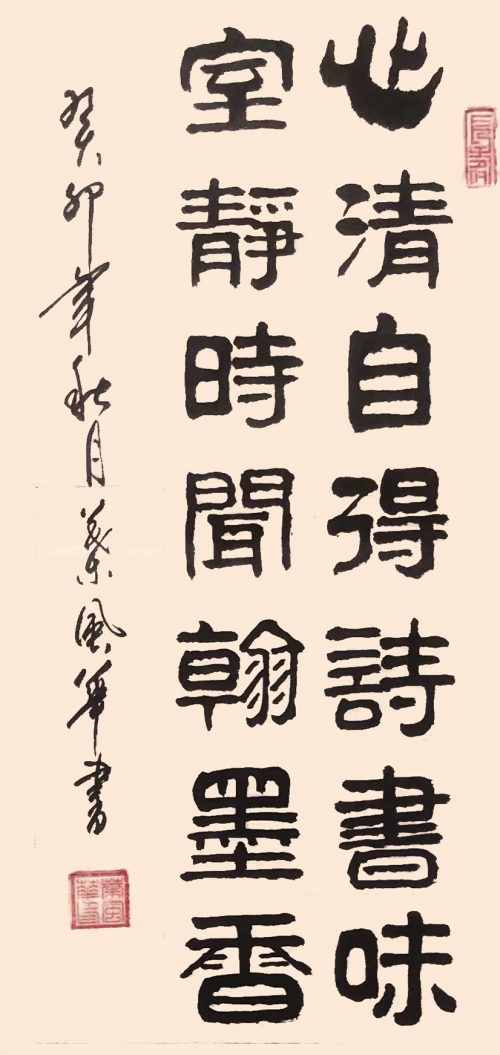 心清自得詩書味
室靜時聞翰墨香
癸卯年秋月葉風華書